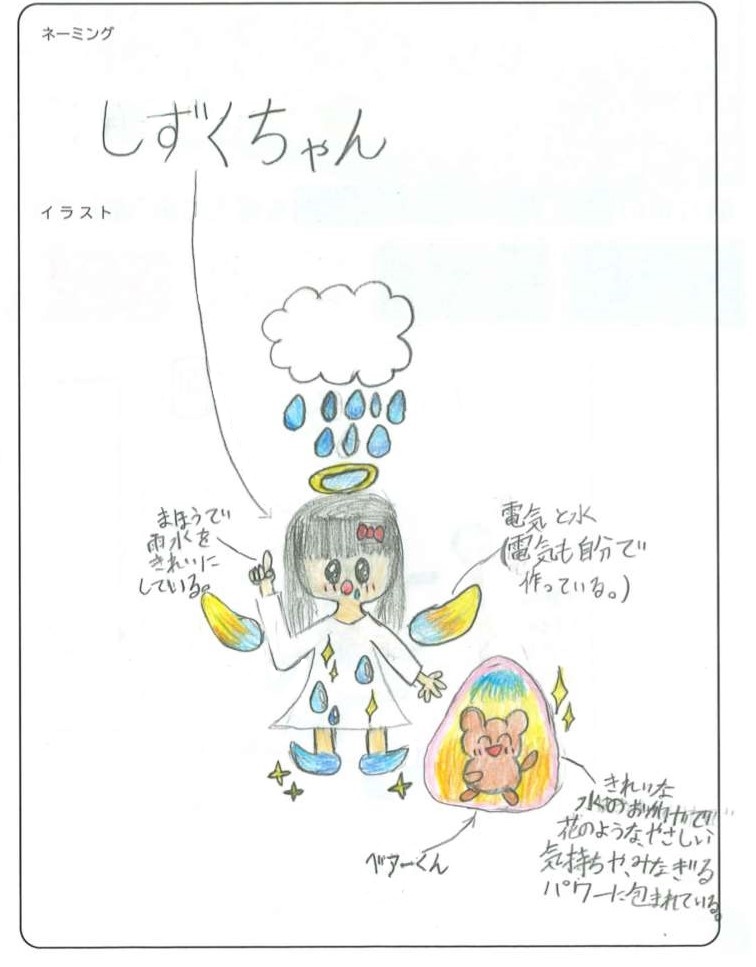 ネーミング
しずくちゃん
イラスト
まほうで
雨水を
きれいに
している。
電気と水
(電気も自分で
作っている。)
きれいな
水のおかげで
花のような、やさしい
気持ちや、みなぎる
パワーに包まれている。
ベアーくん